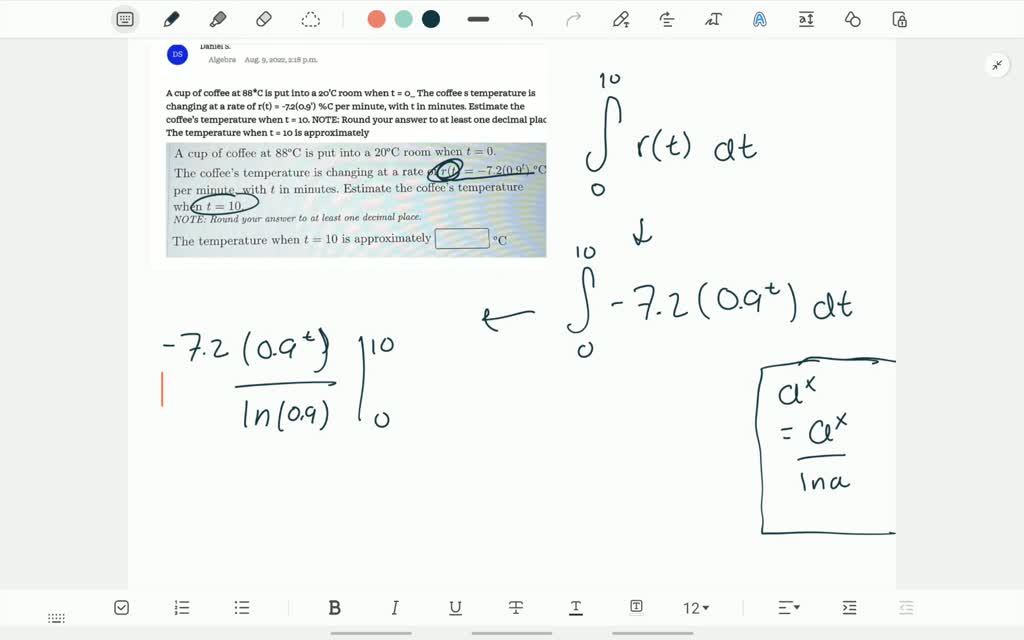 DS
Daniel S.
Algebra Aug. 9, 2022, 2:18 p.m.
A cup of coffee at 88*C is put into a 20'C room when t = 0_ The coffee s temperature is
changing at a rate of r(t) = -7.2(0.9') %C per minute, with t in minutes. Estimate the
coffee's temperature when t = 10. NOTE: Round your answer to at least one decimal plac
The temperature when t = 10 is approximately
A cup of coffee at 88°C is put into a 20°C room when t = 0.
The coffee's temperature is changing at a rate of r(t) = −7.2(0.9^t) °C
per minute, with t in minutes. Estimate the coffee's temperature
when t = 10.
NOTE: Round your answer to at least one decimal place.
The temperature when t = 10 is approximately °C
10
∫ r(t) dt
0
↓
10
∫ -7.2(0.9^t) dt
0
←
-7.2 (0.9^t) | 10
ln(0.9) | 0
a^x
= a^x
ln a
B I U T T T 12